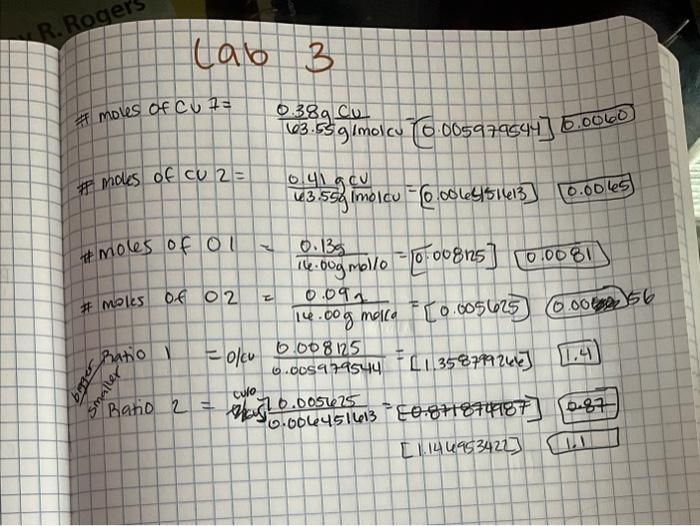 R. Rogers
Lab 3
# moles of Cu 1 = 0.38g Cu / 63.55 g/mol Cu = [0.005979544] 0.0060
# moles of Cu 2 = 0.41 g Cu / 63.55g/mol Cu = [0.006451613] 0.0065
# moles of O 1 = 0.13g / 16.00g mol O = [0.008125] 0.0081
# moles of O 2 = 0.09g / 16.00g mol O = [0.005625] 0.0056
bigger
smaller
Ratio 1 = O/Cu 0.008125 / 0.005979544 = [1.358799266] 1.4
Ratio 2 = Cu/O 0.005625 / 0.006451613 = [0.871874187] 0.87
[1.146953422] 1.1